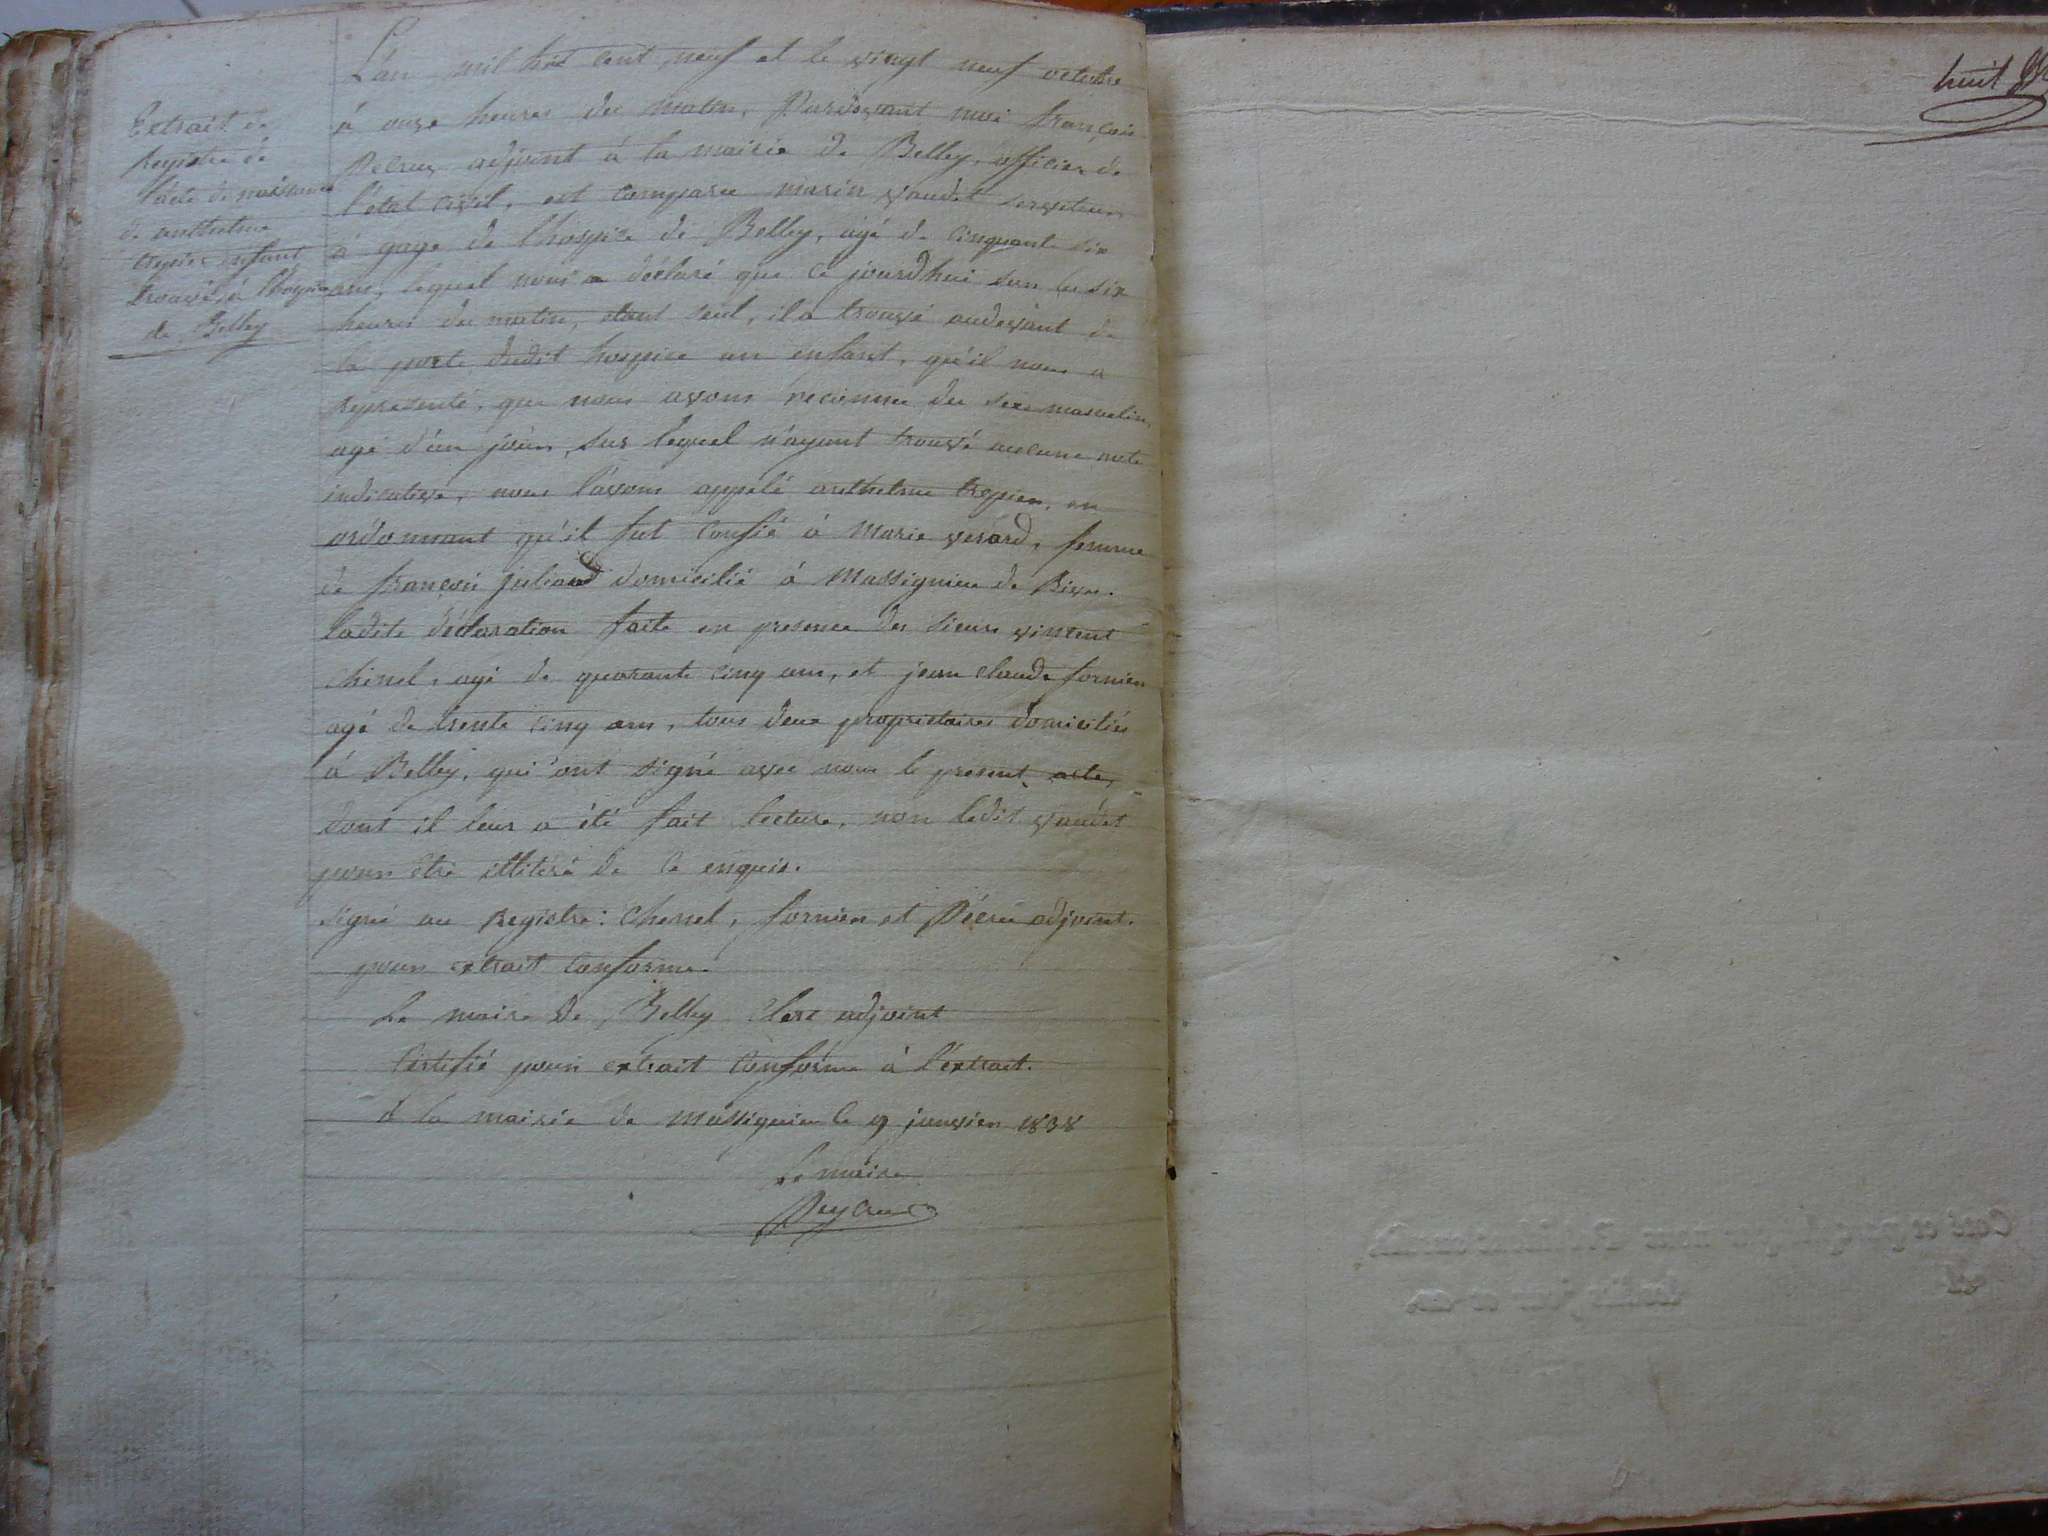 Extrait du
Registre de
l'acte de naissance
de anthelme
trepier enfant
trouvé à l'hospice
de Belley
L'an mil huit cent neuf et le vingt neuf octobre
à onze heures du matin, Pardevant moi françois
Décrue adjoint à la mairie de Belley, officier de
l'état civil, est comparu marin vaudet serviteur
à gage de l'hospice de Belley, agé de cinquante six
ans, lequel nous a déclaré que ce jourdhui sur les six
heures du matin, étant seul, il a trouvé audevant de
la porte dudit hospice un enfant, qu'il nous a
représenté, que nous avons reconnu du sexe masculin,
agé d'un jour, sur lequel n'ayant trouvé aucune note
indicative, nous l'avons appelé anthelme trepier, en
ordonnant qu'il fut confié à Marie verard, femme
de françois juliand domicilié à Massignieu de Rives.
ladite déclaration faite en presence des sieurs vincent
chenel, agé de quarante cinq ans, et jean claude fornier
agé de trente cinq ans, tous deux propriétaires domiciliés
à Belley, qui ont signé avec nous le présent acte,
dont il leur a été fait lecture, non ledit vaudet
pour être illitéré de ce enquis.
Signé au Registre: Chenel, fornier et Décrue adjoint.
pour extrait conforme
Le maire de Belley Clerc adjoint
Certifié pour extrait conforme à l'extrait.
à la mairie de Massignieu le 9 janvier 1838
Le maire
huit